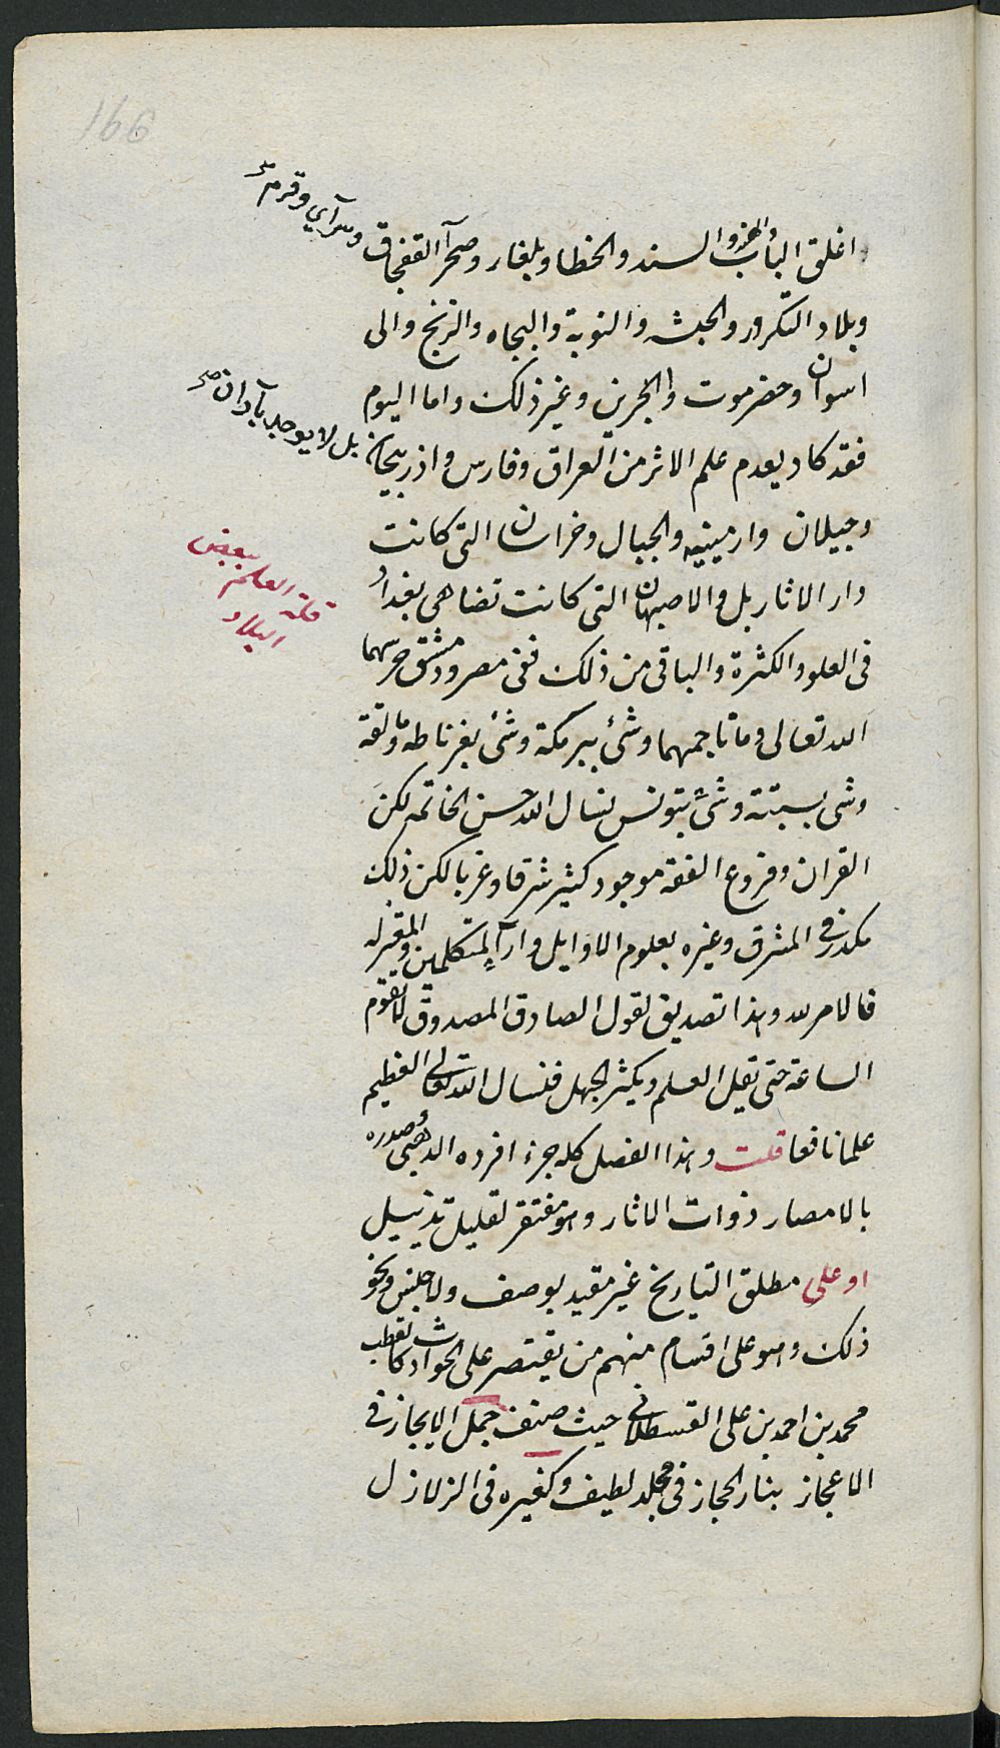 166
اغلق الباب والهند والسند والخطا وبلغار وصحرآ القفجاق
وسرآي وقرم صح
وبلاد التكرور والحبشه والنوبة والبجاه والزنج والى
اسوان وحضرموت والبحرين وغير ذلك واما اليوم
فقد كاد يعدم علم الاثر من العراق وفارس واذربيجان
بل لا يوجد بآران صح
وجيلان وارمينيه والجبال وخراسان التى كانت
دار الاثار بل والاصبهان التى كانت تضاهى بغداد
قلة العلم ببعض
البلاد
فى العلو والكثرة والباقى من ذلك ففى مصر ودمشق حرسهما
الله تعالى وما تاجمهما وشئ يسير بمكة وشئ بغرناطه ومالقة
وشى بسبتة وشئ بتونس نسال الله حسن الخاتمه لكن
القران وفروع الفقه موجود كثير شرقا وغربا لكن ذلك
مكدر فى المشرق وغيره بعلوم الاوايل وارآ المتكلمين والمعتزله
فالامر لله وهذا تصديق لقول الصادق المصدوق لا تقوم
الساعة حتى يقل العلم ويكثر الجهل فنسال الله تعالى العظيم
علما نافعا قلت وهذا الفصل كله جزء افرده الذهبى وصدره
بالامصار ذوات الاثار وهو مفتقر لقليل تذييل
او على مطلق التاريخ غير مقيد بوصف ولا جنس ونحو
ذلك وهو على اقسام منهم من يقتصر على الحوادث كالقطب
محمد بن احمد بن على القسطلانى حيث صنف جمل الايجاز فى
الاعجاز بنار الحجاز فى مجلد لطيف وكغيره فى الزلازل